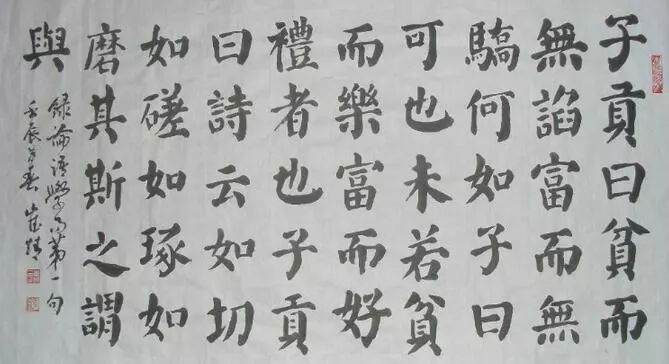 子貢曰貧而
無諂富而無
驕何如子曰
可也未若貧
而樂富而好
禮者也子貢
曰詩云如切
如磋如琢如
磨其斯之謂
與
錄論語學而第一句
壬辰